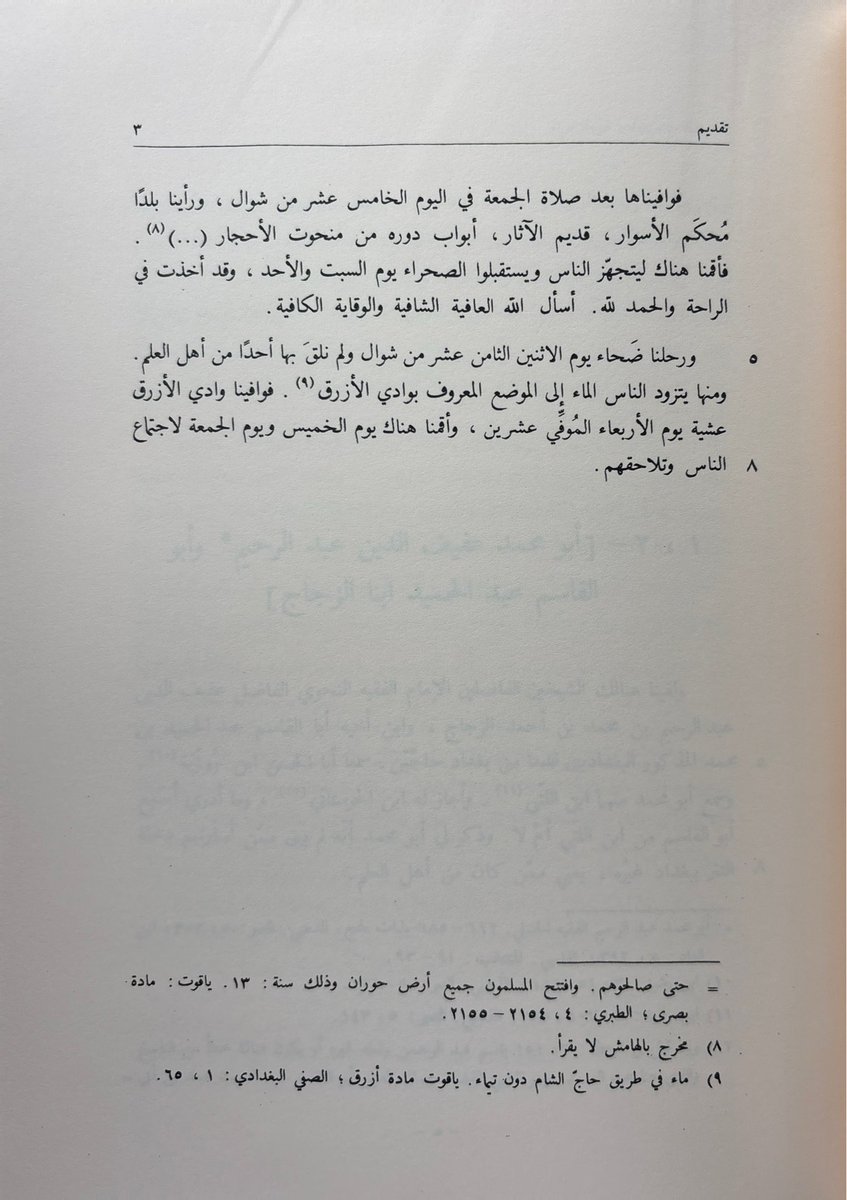 تقديم ٣
فوافيناها بعد صلاة الجمعة في اليوم الخامس عشر من شوال ، ورأينا بلدًا
مُحكَم الأسوار ، قديم الآثار ، أبواب دوره من منحوت الأحجار (...)(٨) .
فأقمنا هناك ليتجهّز الناس ويستقبلوا الصحراء يوم السبت والأحد ، وقد أخذت في
الراحة والحمد لله. أسأل الله العافية الشافية والوقاية الكافية.
٥ ورحلنا ضَحاء يوم الاثنين الثامن عشر من شوال ولم نلقَ بها أحدًا من أهل العلم.
ومنها يتزود الناس الماء إلى الموضع المعروف بوادي الأزرق(٩) . فوافينا وادي الأزرق
عشية يوم الأربعاء المُوفِّي عشرين ، وأقمنا هناك يوم الخميس ويوم الجمعة لاجتماع
٨ الناس وتلاحقهم.
= حتى صالحوهم. وافتتح المسلمون جميع أرض حوران وذلك سنة: ١٣. ياقوت: مادة
بصرى؛ الطبري: ٤ ، ٢١٥٤ – ٢١٥٥.
٨) مخرج بالهامش لا يقرأ.
٩) ماء في طريق حاجّ الشام دون تيماء. ياقوت مادة أزرق؛ الصفي البغدادي: ١ ، ٦٥.